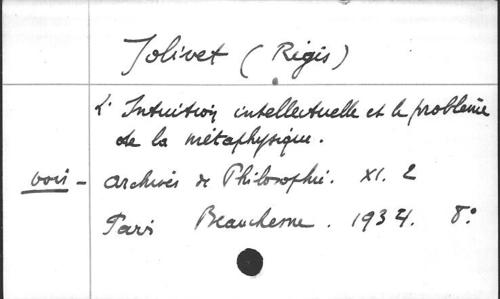 Jolivet (Régis)
L'Intuition intellectuelle et le problème
de la métaphysique.
voir - Archives de Philosophie. XI. 2
Paris Beauchesne. 1934. 8°